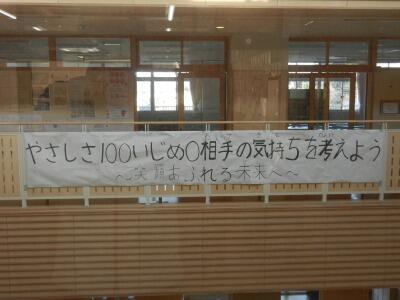 やさしさ100いじめ0相手の気持ちを考えよう
～笑顔あふれる未来へ～